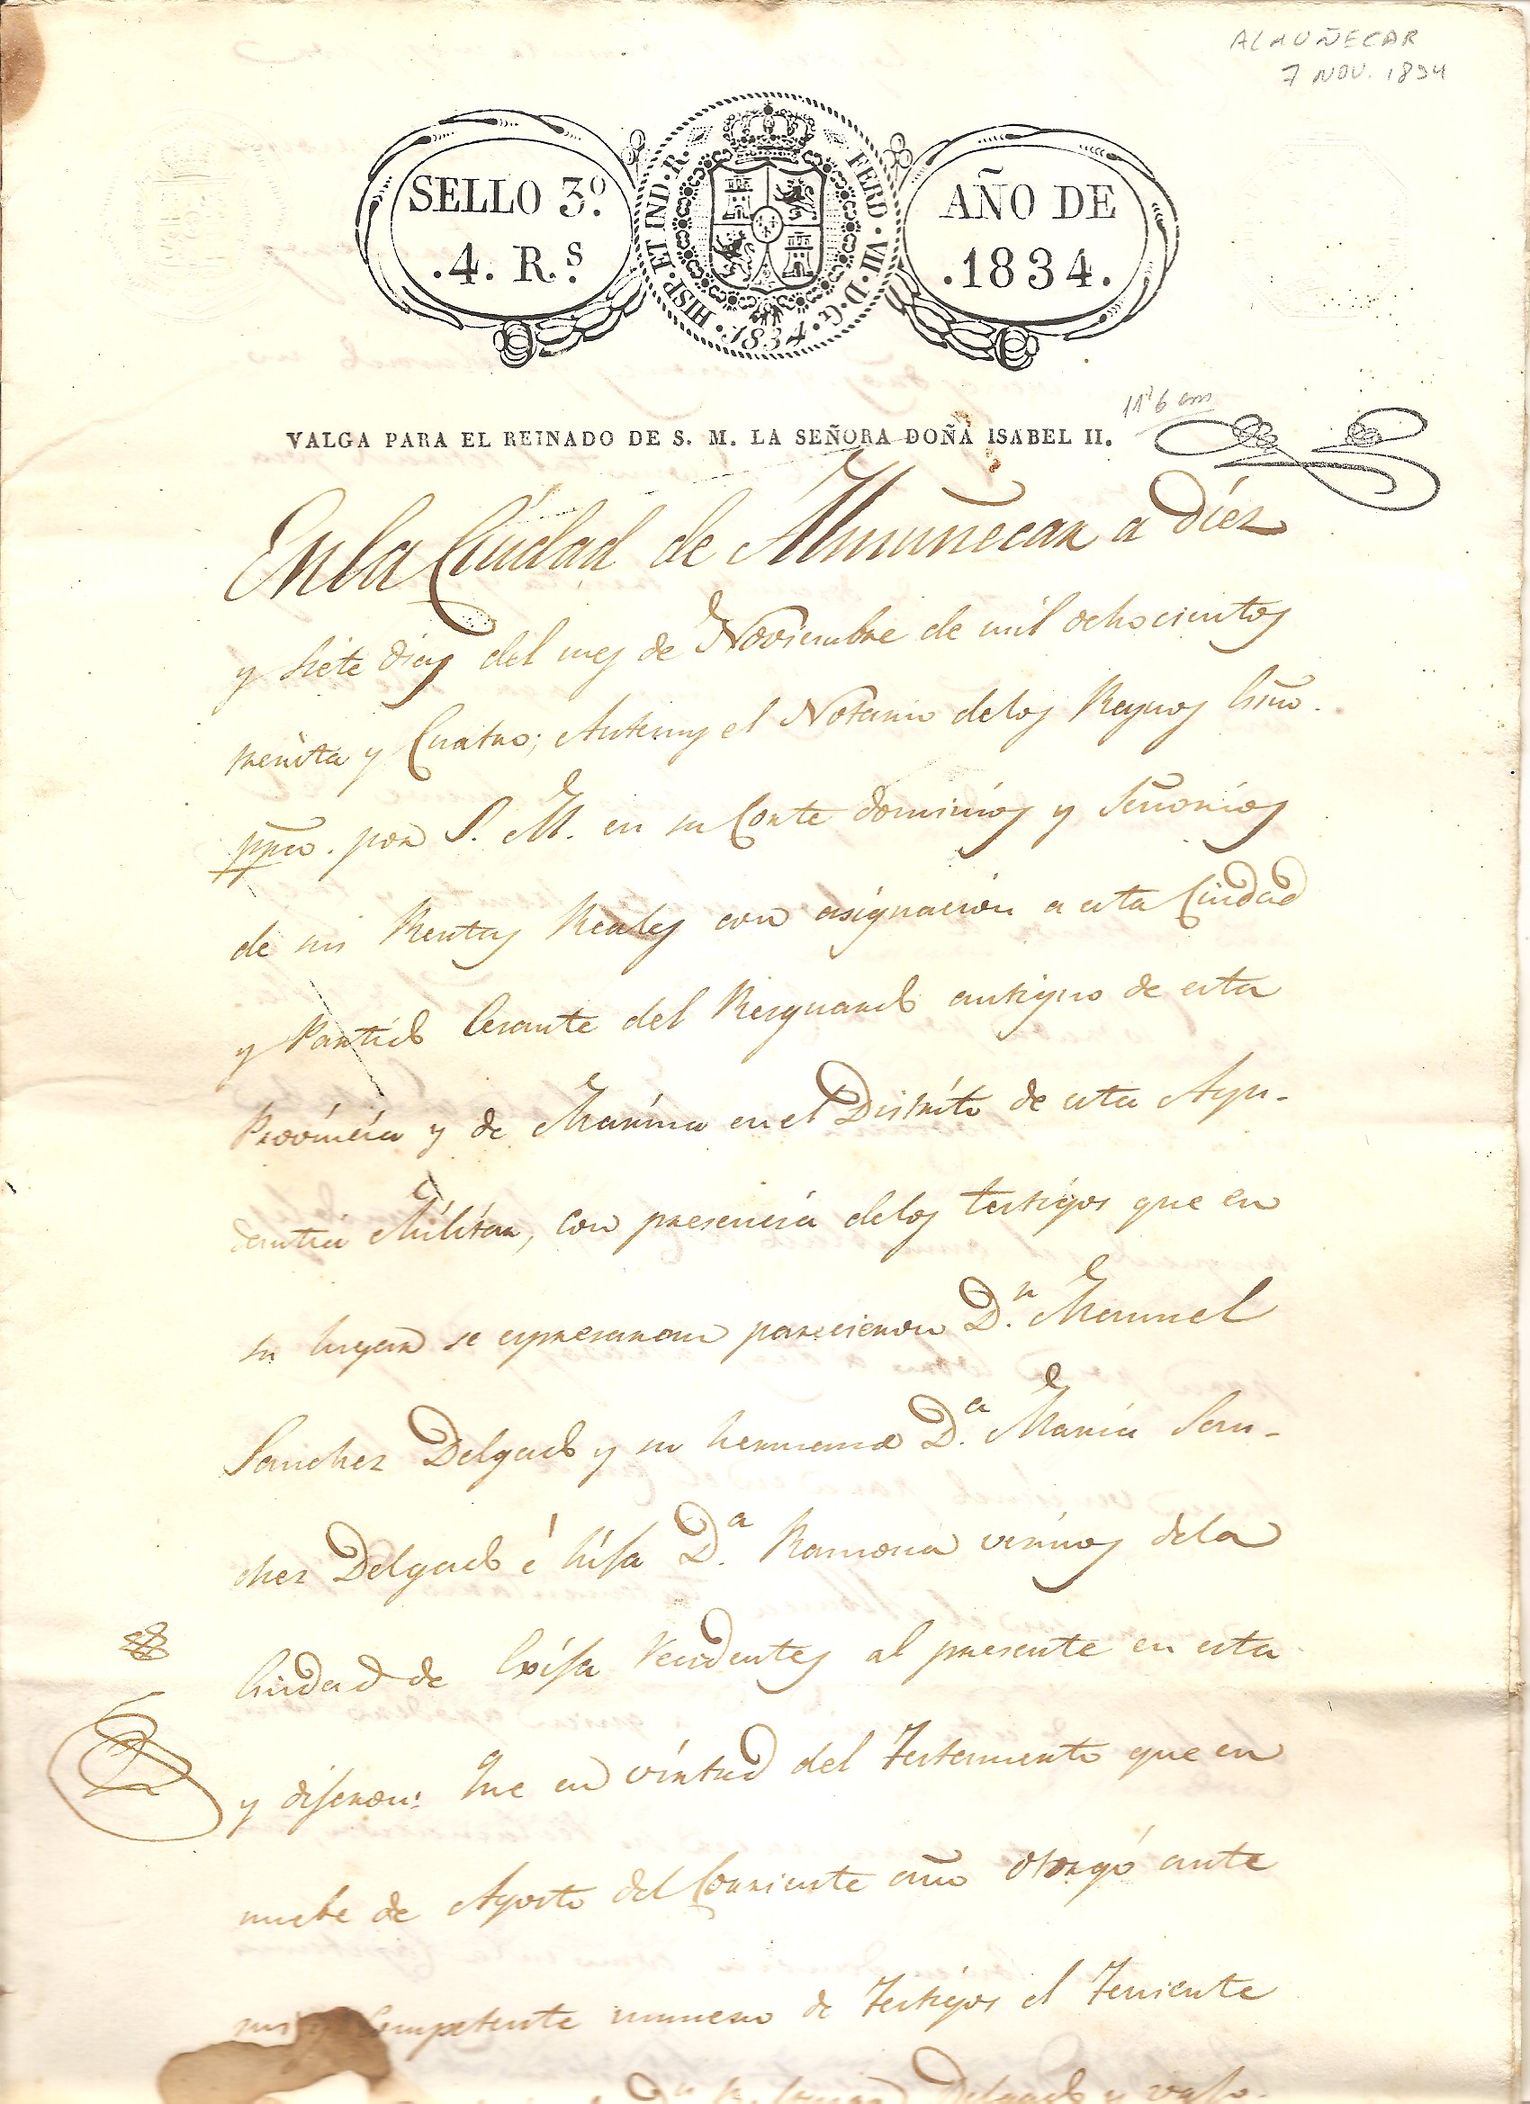 ALMUÑECAR
7 NOV. 1834
SELLO 3º.
.4. R.s
HISP. ET IND. R. FERD. VII. D. G. 1834
AÑO DE
.1834.
11'6 cm
VALGA PARA EL REINADO DE S. M. LA SEÑORA DOÑA ISABEL II.
En la Ciudad de Almuñecar a diez
y siete dias del mes de Noviembre de mil ochocientos
treinta y Cuatro; Antemy el Notario delos Reynos Essno.
ppco. por S. M. en su Corte dominios y Señorios
de sus Rentas Reales con asignacion a esta Ciudad
y Partido Cesante del Resguardo antiguo de esta
Provincia y de Marina en el Distrito de esta Ayu-
dantia Militar, con presencia delos testigos que en
su lugar se espresaran parecieron D.n Manuel
Sanchez Delgado y su hermana D.a Maria San-
chez Delgado é hija D.a Ramona vecinos dela
Ciudad de Residentes al presente en esta
y dijeron: Que en virtud del Testamento que en
nuebe de Agosto del Corriente año otorgó ante
mi y Competente numero de Testigos el Teniente
D.n Delgado y